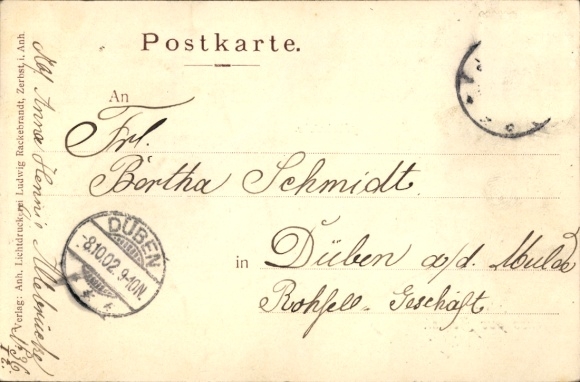 Postkarte.
An
Frl.
Bertha Schmidt
in Düben a/d. Mulde
Rohfell-Geschäft
DÜBEN
-8.10.02. 9-10N.
Verlag: Anh. Lichtdruckerei Ludwig Rackebrandt, Zerbst, i. Anh.
Anna Hennig